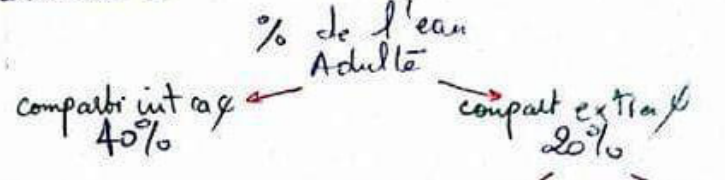 % de l'eau
Adulte
comparti intra¢ compart extra¢
40% 20%